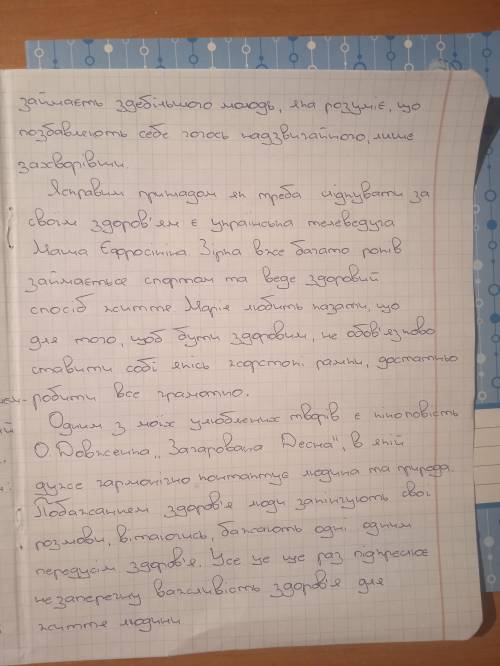 займають здебільшого молодь, яка розуміє, що
позбавляють себе чогось надзвичайного, лише
захворівши.
Яскравим прикладом як треба слідкувати за
своїм здоров'ям є українська телеведуча
Маша Єфросініна. Зірка вже багато років
займається спортом та веде здоровий
спосіб життя. Марія любить казати, що
для того, щоб бути здоровим, не обов'язково
ставити собі якісь жорсткі рамки, достатньо
робити все грамотно.
Одним з моїх улюблених творів є кіноповість
О. Довженка „Зачарована Десна", в якій
дуже гармонічно контактує людина та природа.
Побажанням здоров'я люди закінчують свої
розмови, вітаючись, бажають одні одним
передусім здоров'я. Усе це ще раз підкреслює
незаперечну важливість здоров'я для
життя людини